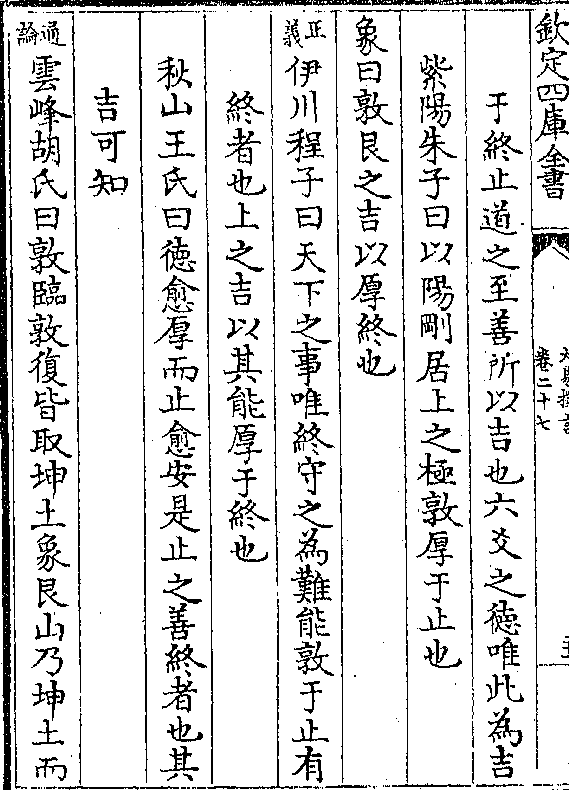 欽定四庫全書
卷二十七
于終止道之至善所以吉也六爻之徳唯此為吉
紫陽朱子曰以陽剛居上之極敦厚于止也
象曰敦艮之吉以厚終也
正義
伊川程子曰天下之事唯終守之為難能敦于止有
終者也上之吉以其能厚于終也
秋山王氏曰徳愈厚而止愈安是止之善終者也其
吉可知
通論
雲峰胡氏曰敦臨敦復皆取坤土象艮山乃坤土而